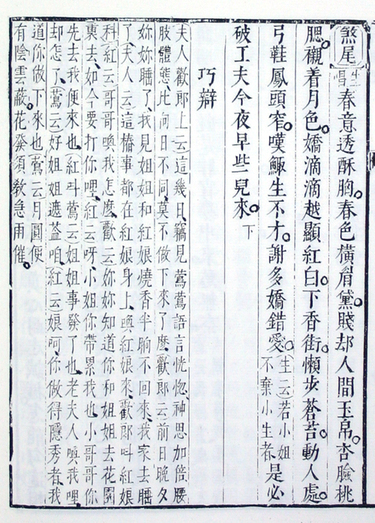 煞尾生唱春意透酥胸。春色橫眉黛。賤却人間玉帛。杏臉桃
腮。襯着月色。嬌滴滴越顯紅白。下香街。懶步蒼苔。動人處
弓鞋鳳頭窄。嘆鯫生不才。謝多嬌錯愛。生云若小姐不棄小生者是必
破工夫今夜早些兒來。下
巧辯
夫人歡郎上云這幾日竊見鶯鶯語言恍惚。神思加倍。腰
肢體態。比向日不同。莫不做下來了麽。歡郎云前日晚夕
妳妳睡了。我見姐姐和紅娘燒香半晌不回來。我家去睡
了夫人云這樁事都在紅娘身上。喚紅娘來。歡郎叫紅娘
科紅云哥哥喚我怎麽。歡云妳妳知道你和姐姐去花園
裏去。如今要打你哩。紅云呀。小姐你帶累我也。小哥哥你
先去我便來也。紅對鶯云姐姐事發了也。老夫人喚我哩。
却怎了。鶯云好姐姐遮蓋咱。紅云娘呵。你做得隱秀者。我
道你做下來也。鶯云月圓便
有陰雲蔽。花發須教急雨催。